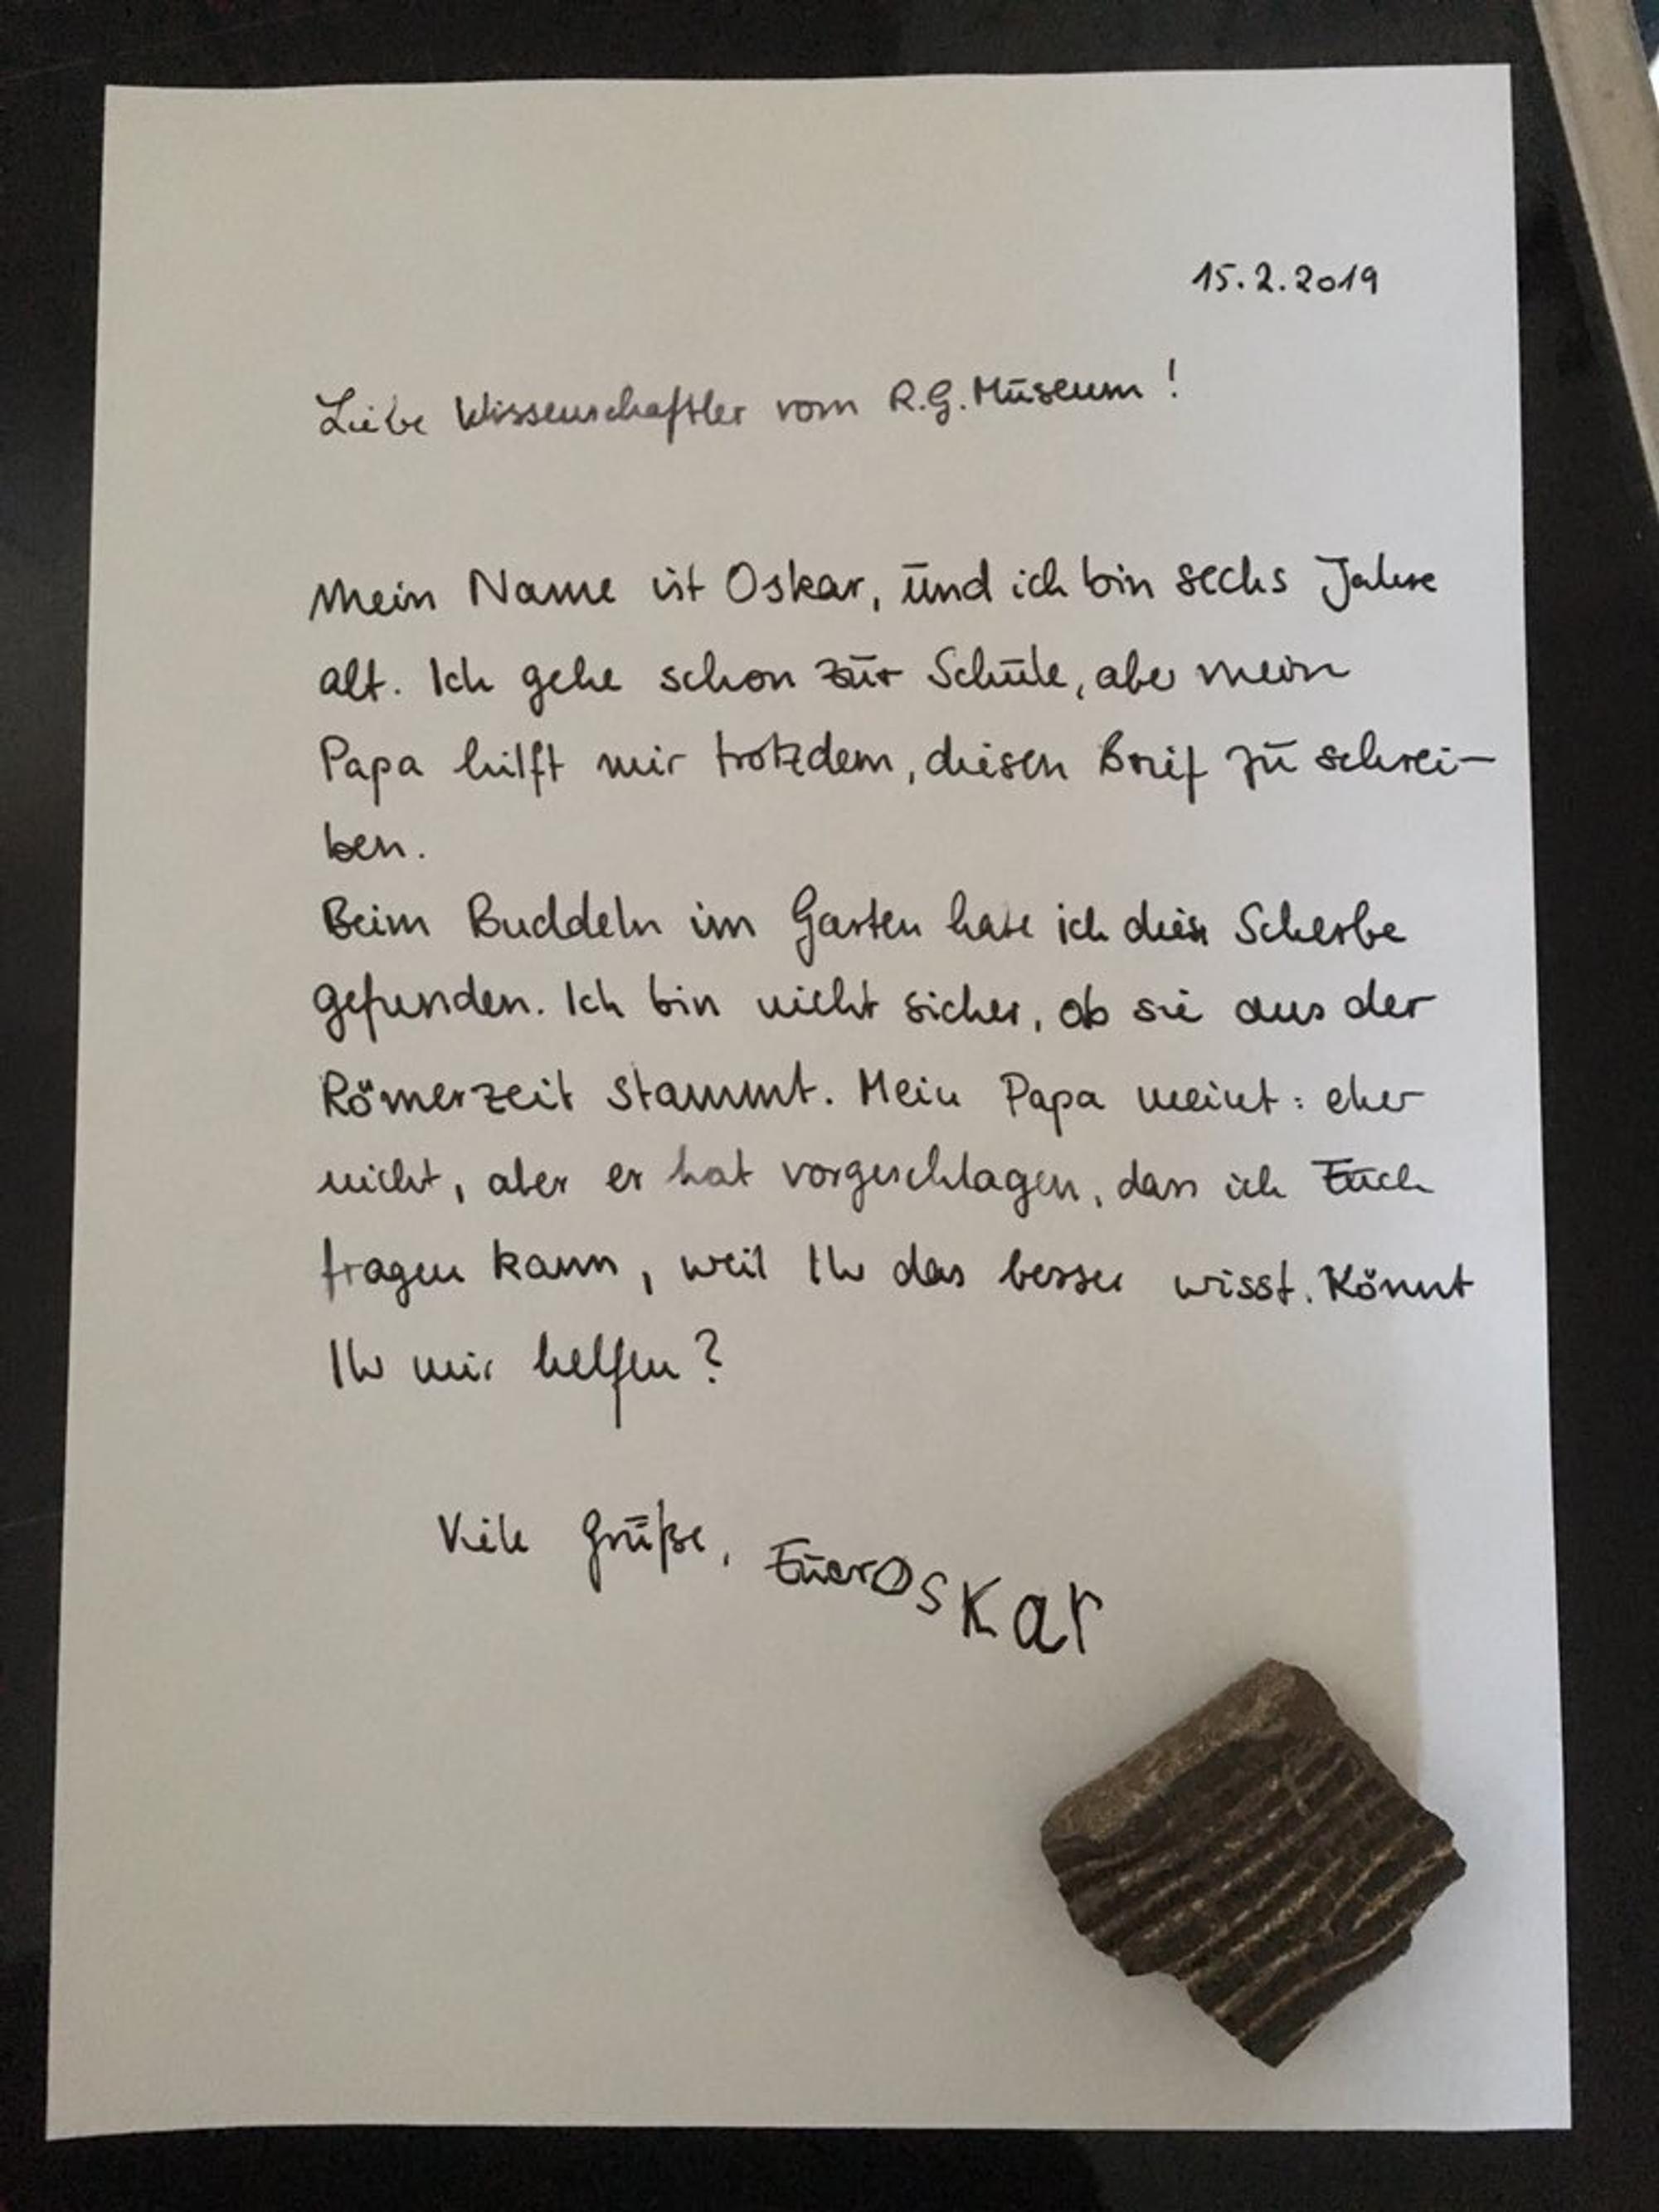 15.2.2019
Liebe Wissenschaftler vom R.G. Museum!
Mein Name ist Oskar, und ich bin sechs Jahre
alt. Ich gehe schon zur Schule, aber mein
Papa hilft mir trotzdem, diesen Brief zu schrei-
ben.
Beim Buddeln im Garten habe ich diese Scherbe
gefunden. Ich bin nicht sicher, ob sie aus der
Römerzeit stammt. Mein Papa meint: eher
nicht, aber er hat vorgeschlagen, dass ich Euch
fragen kann, weil Ihr das besser wisst. Könnt
Ihr mir helfen?
Viele Grüße, Euer Oskar